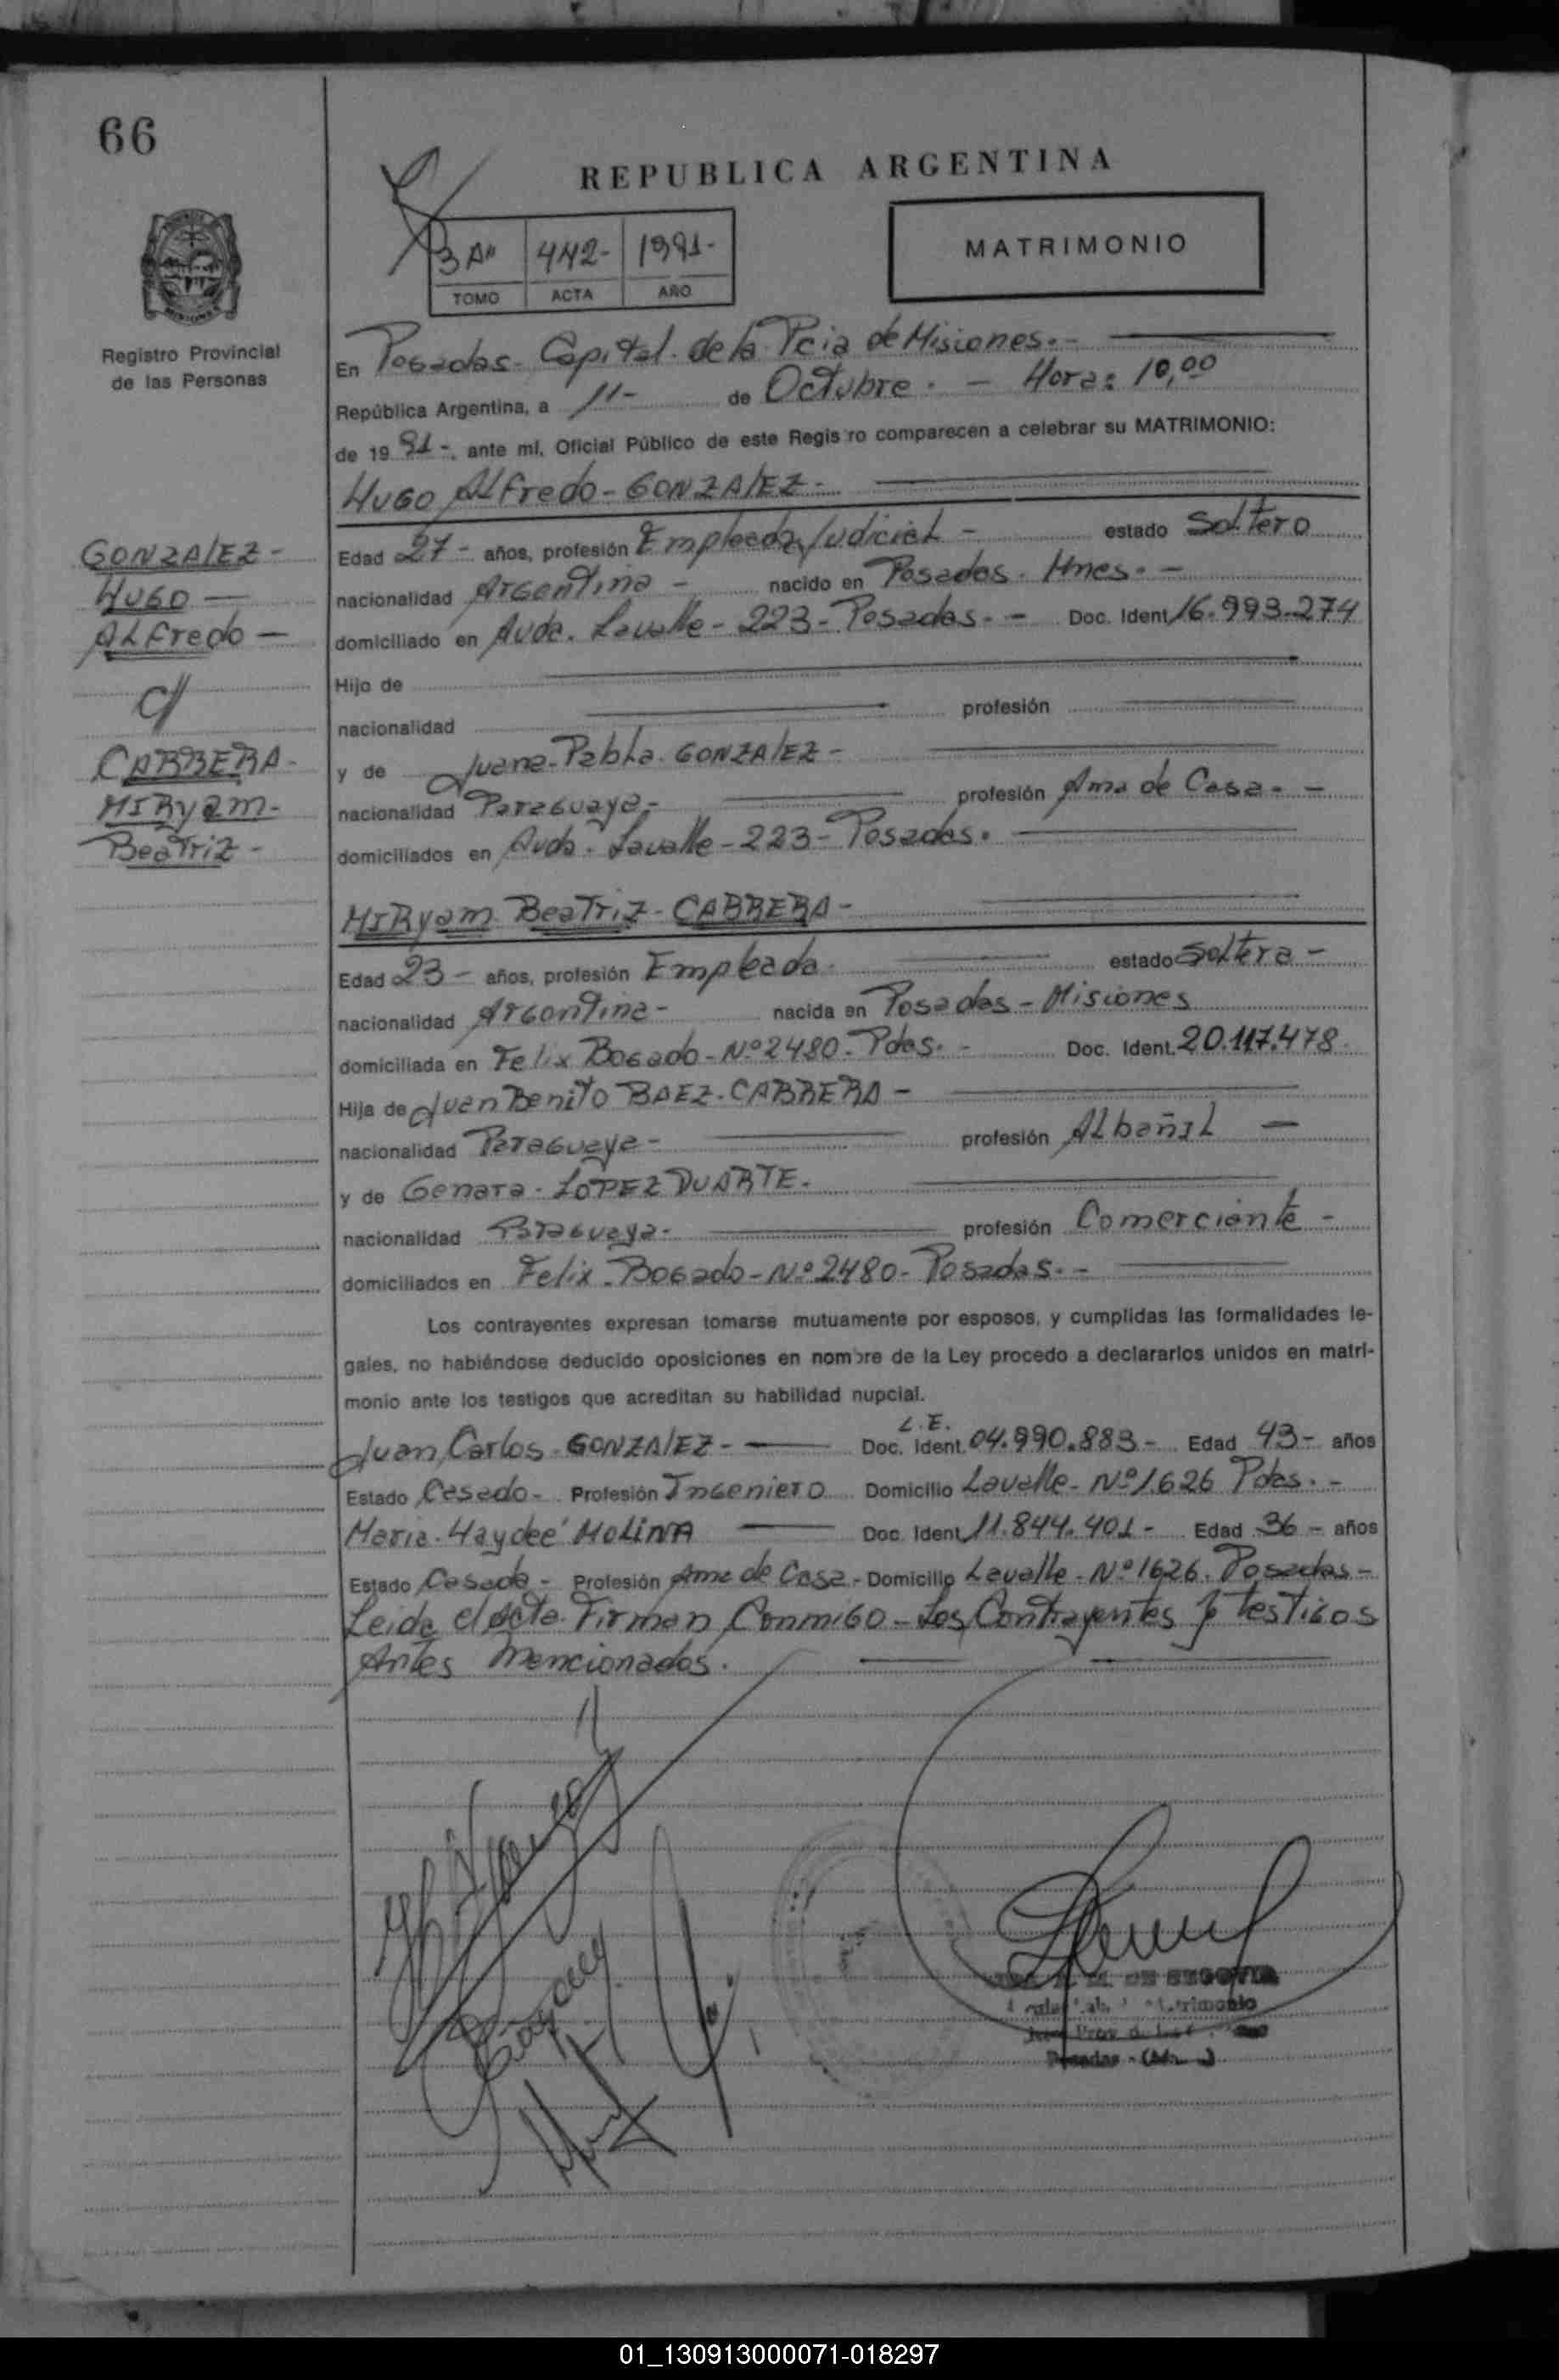 66
REPUBLICA ARGENTINA
3 Aº 442- 1991-
TOMO ACTA AÑO
MATRIMONIO
Registro Provincial
de las Personas
En Posadas- Capital. de la Pcia de Misiones.-
República Argentina, a 11- de Octubre. - Hora: 10,00
de 19 91-, ante mí, Oficial Público de este Registro comparecen a celebrar su MATRIMONIO:
HUGO ALfredo- GONZALEZ-
GONZALEZ-
HUGO
ALfredo-
c/
CABRERA-
MIRyam-
BeaTriz-
Edad 27- años, profesión Empleado Judicial- estado SoLTero
nacionalidad ArgenTina- nacido en Posadas. Mnes.-
domiciliado en Avda. Lavalle- 223- Posadas.- Doc. Ident 16.993.274
Hijo de
nacionalidad profesión
y de Juana-Pabla. GONZALEZ-
nacionalidad Paraguaya- profesión Ama de Casa.-
domiciliados en Avda. Lavalle-223- Posadas.
MIRyam BeaTriz- CABRERA-
Edad 23- años, profesión Empleada. estado soLtera-
nacionalidad ArgenTina- nacida en Posadas- Misiones
domiciliada en Felix Bogado- Nº 2480- Pdas.- Doc. Ident. 20.117.478.
Hija de Juan Benito BAEZ-CABRERA-
nacionalidad Paraguaya- profesión ALbañiL -
y de Genara- LOPEZ DUARTE.
nacionalidad Paraguaya- profesión Comerciante-
domiciliados en Felix- Bogado- Nº 2480- Posadas.-
Los contrayentes expresan tomarse mutuamente por esposos, y cumplidas las formalidades le-
gales, no habiéndose deducido oposiciones en nombre de la Ley procedo a declararlos unidos en matri-
monio ante los testigos que acreditan su habilidad nupcial.
L.E.
Juan Carlos- GONZALEZ- Doc. Ident. 04.990.883- Edad 43- años
Estado Casado- Profesión Ingeniero Domicilio Lavalle- Nº 1626 Pdas.-
Maria- Haydeé MOLINA Doc. Ident. 11.844.401- Edad 36- años
Estado Casada- Profesión Ama de Casa- Domicilio Lavalle- Nº 1626. Posadas-
Leida el Acta. Firman Conmigo- Los Contrayentes y testigos
Antes mencionados.
DE SEGOVIA
Posadas
01_130913000071-018297